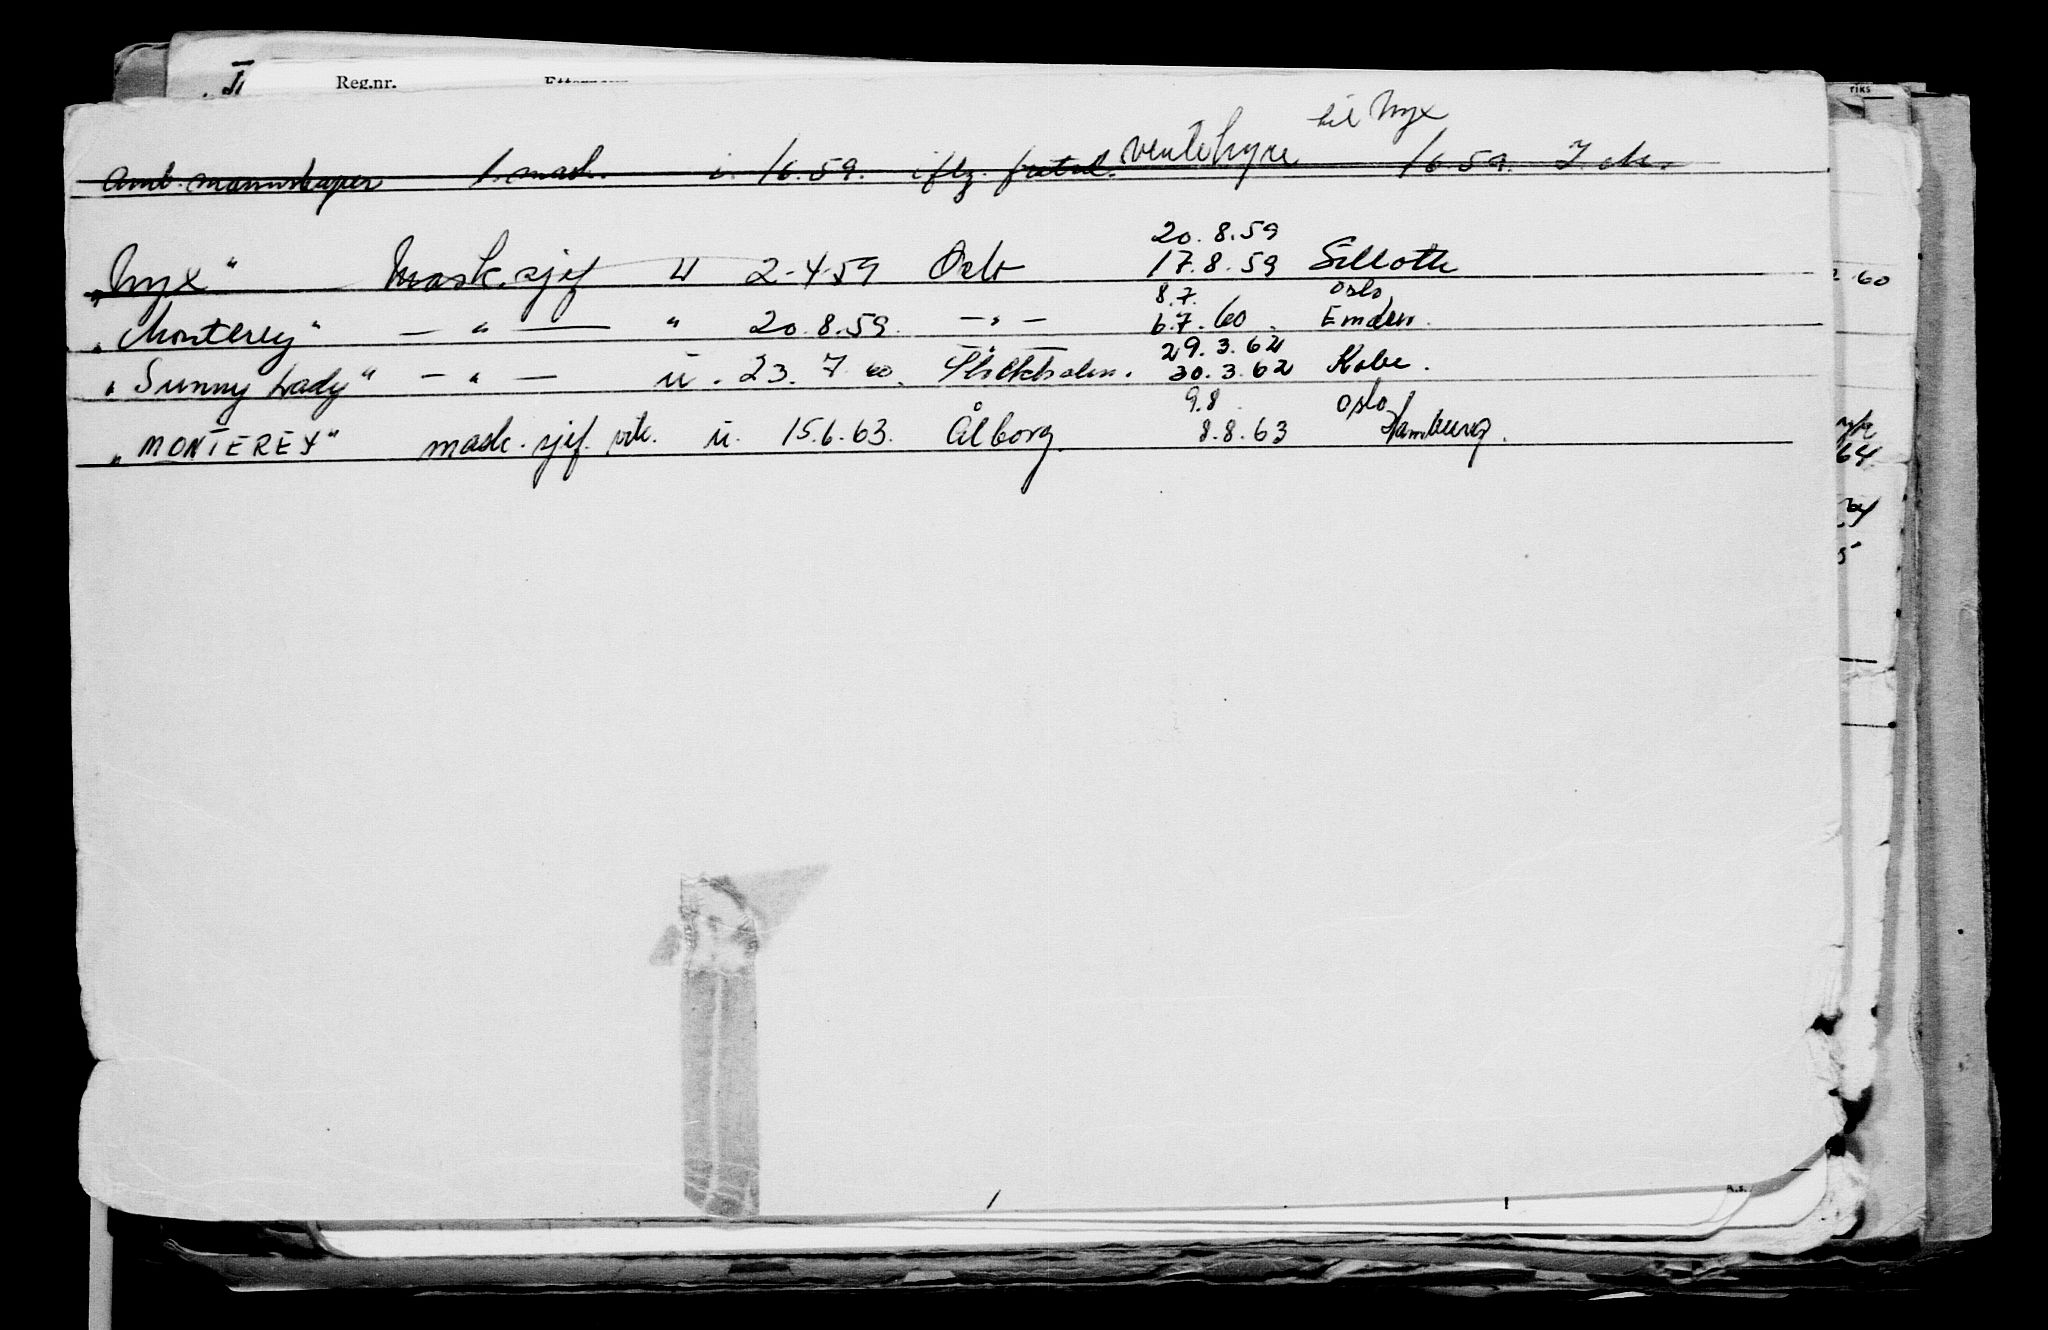 Reg.nr.
riks
til Nyx
Amb. mannskaper 1. mask. i. 1/6.59. iflg. ventehyre 1/6.59. J.M.
20.8.59
"Nyx" Mask.sjef U 2-4-59 Oslo 17.8.59 Silloth
2.60
8.7. Oslo
"Monterey" — " — " 20.8.59. — " — 6.7.60. Emden.
29.3.62
"Sunny Lady" — " — u. 23.7.60. Stockholm. 30.3.62 Kobe.
9.8. Oslo
"MONTEREY" mask. sjef. vik. u. 15.6.63. Ålborg. 8.8.63 Hamburg.
64
5
A.s.